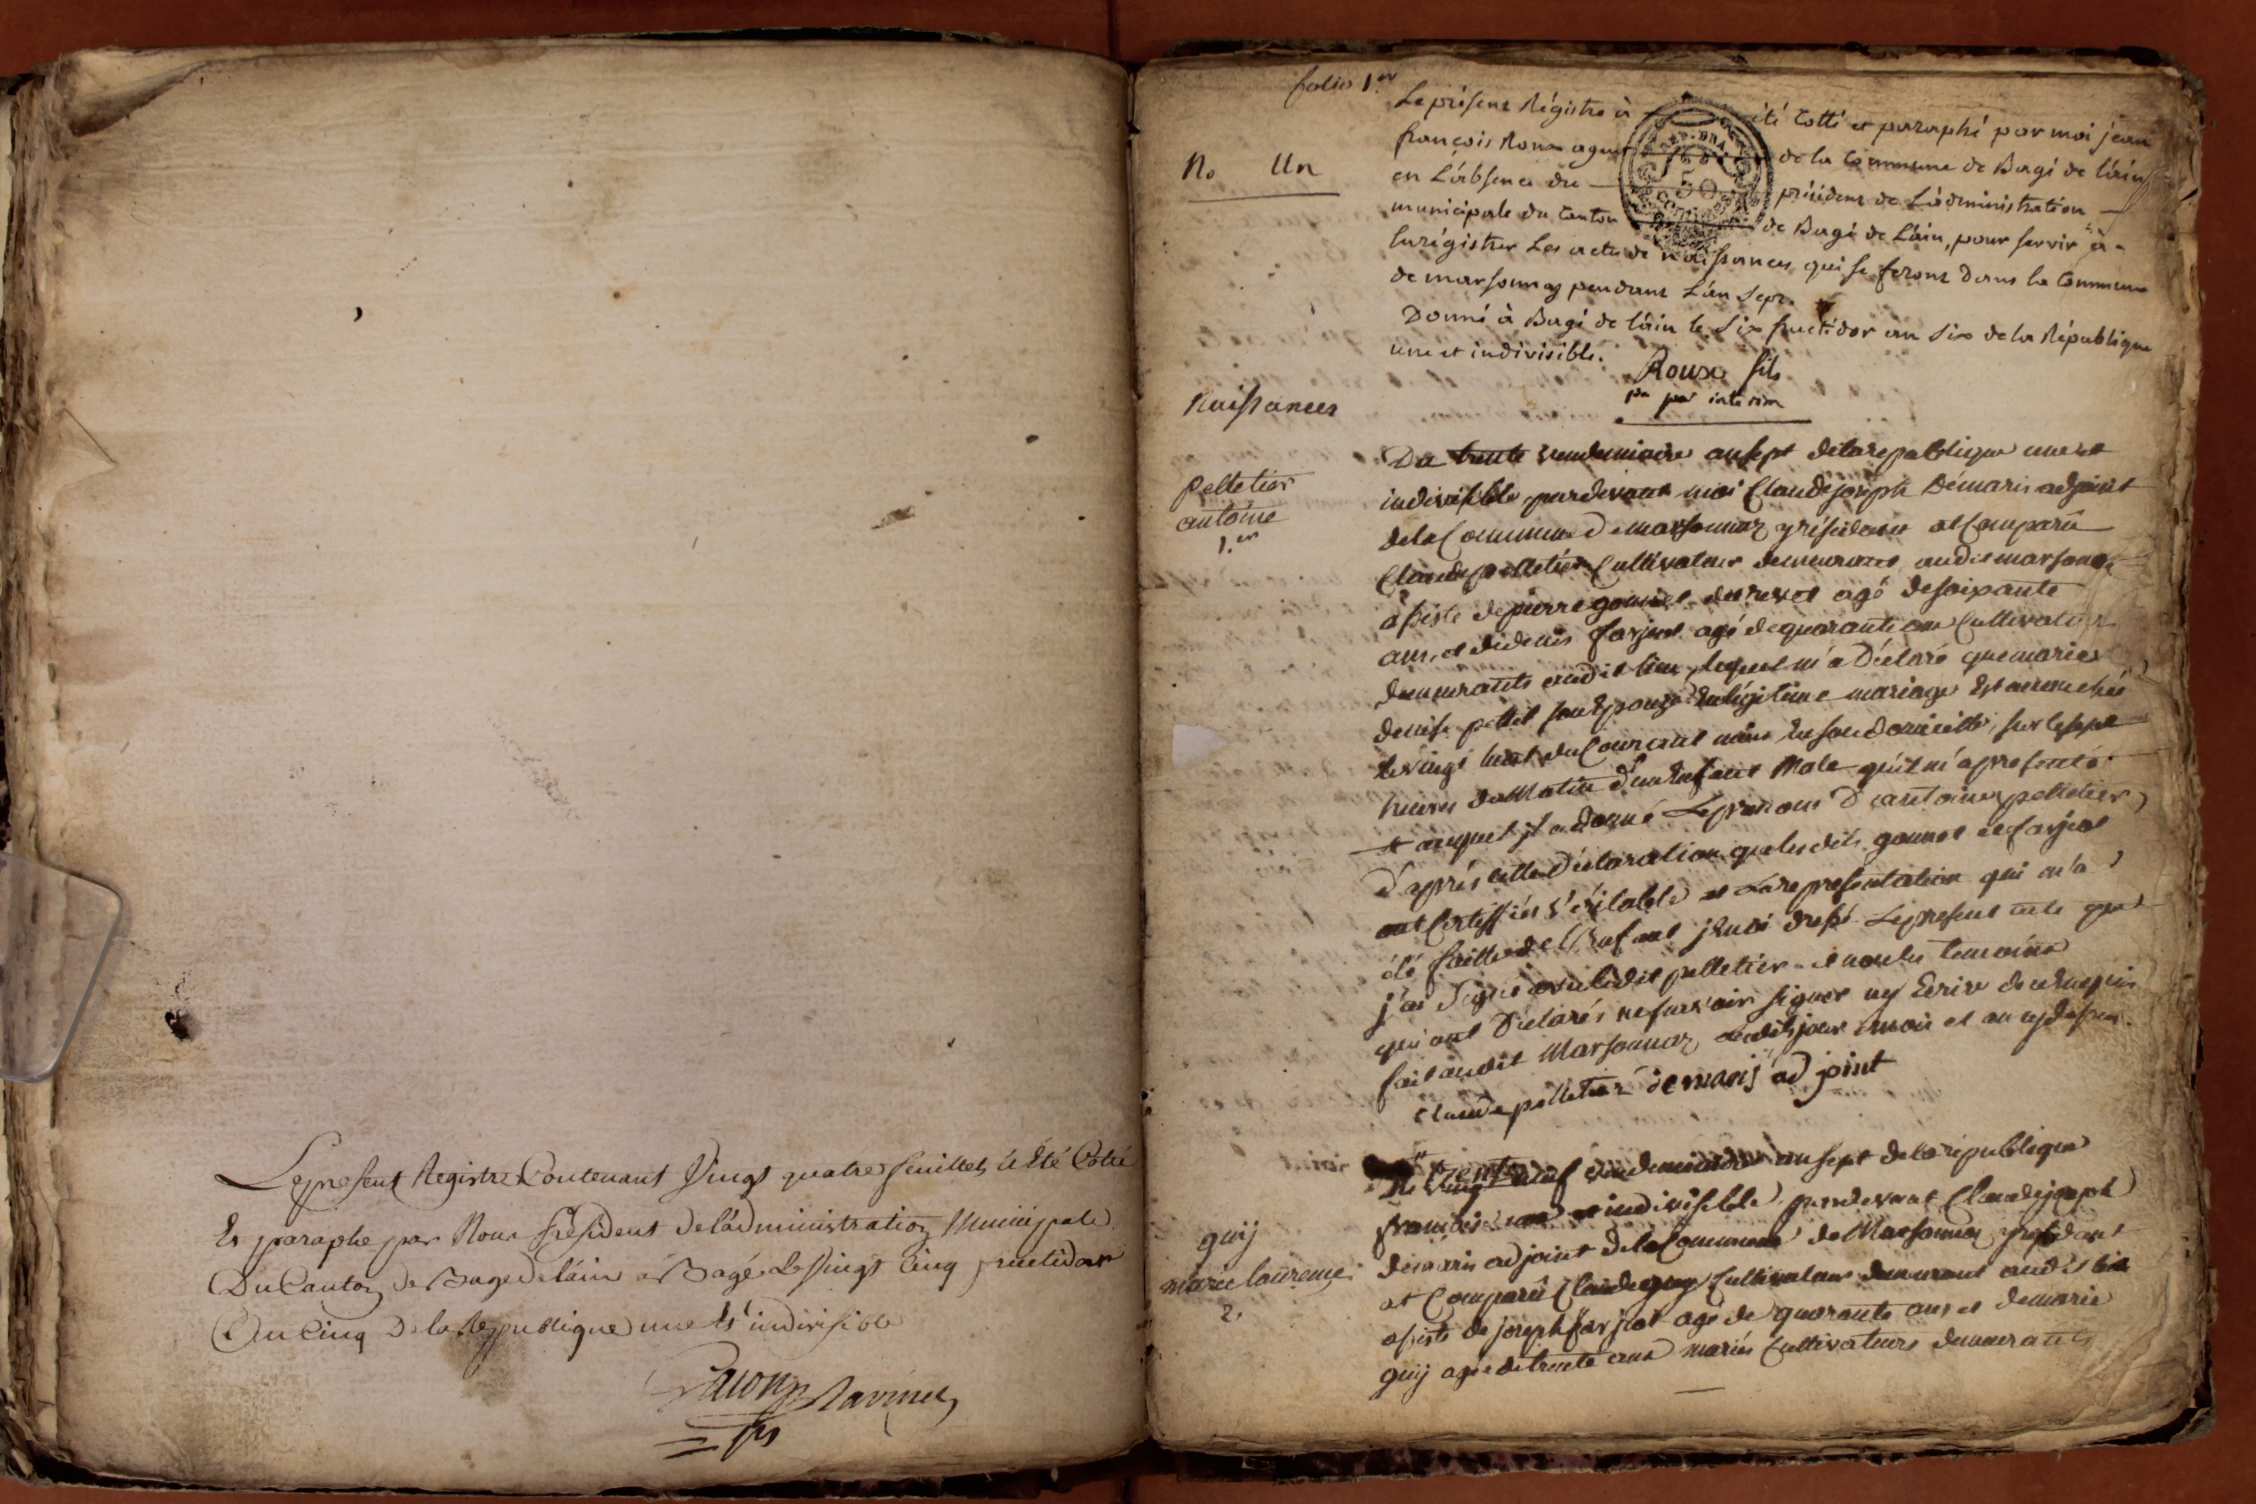 Le present Registre Contenant Vingt quatre feuillets à Eté Cotté
Et paraphé par Nous President de l'administration Municipale
Du Canton de Bagé de lain à Bagé Le Vingt Cinq fructidor
An Cinq De la Republique une Et indivisible
folio 1.er
N.o Un
Le présent Régistre à été Cotté et paraphé par moi jean
françois Roux agent de la Commune de Bagé de láin
en L'absence du président de L'administration
municipale du Canton de Bagé de Láin, pour servir à
Enrégistrer Les actes de naissances qui se feront dans la Commune
de marsonnay pendant L'an Sept.
Donné à Bagé de láin le Six fructidor an Six de la République
une et indivisible.
Roux fils
pnt par interim
Naissances
pelletier
antoine
1.er
Du trente vendemiaire an sept de la republique une et
indivisible pardevant moi Claude joseph Démaris adjoint
de la Commune de marsonnaz y résidant at Comparû
Claude pelletier Cultivateur demeurant audit marsonnaz
assisté de pierre gonnet agé de soixante
ans, et de denis farjeot agé de quarante ans Cultivateurs
demeurants audit lieu, lequel m'a Déclaré que marie
denise petit son Epouse En légitime mariage Est accouchée
le vingt huit du Courant mois En son domicille, sur les sept
heures du Matin d'un Enfant Male qu'il m'a presenté
et auquel il a donné Le prenom D'antoine pelletier
d'après cette Déclaration que lesdits gonnet et farjeot
ont Certiffiés véritable et La representation qui m'a
été faitte de l'Enfant j'en ai dressé Le present acte que
j'ai signé avec ledit pelletier et non les temoins
qui ont Déclarés ne savoir signer ny Ecrire de ce Enquis
fait audit Marsonnaz Lesdits jour mois et an cy dessus.
claude pelletier demaris adjoint
guij
marie laurence
2.
Du trente vendemiaire an sept de la république
française une et indivisible pardevant Claude joseph
démaris adjoint de la Commune de Marsonnaz y residant
at Comparû Claude guy Cultivateur demeurant audit lieu
assisté de joseph farjeot agé de quarante ans et de marie
guij agée de trente ans mariés Cultivateurs demeurants